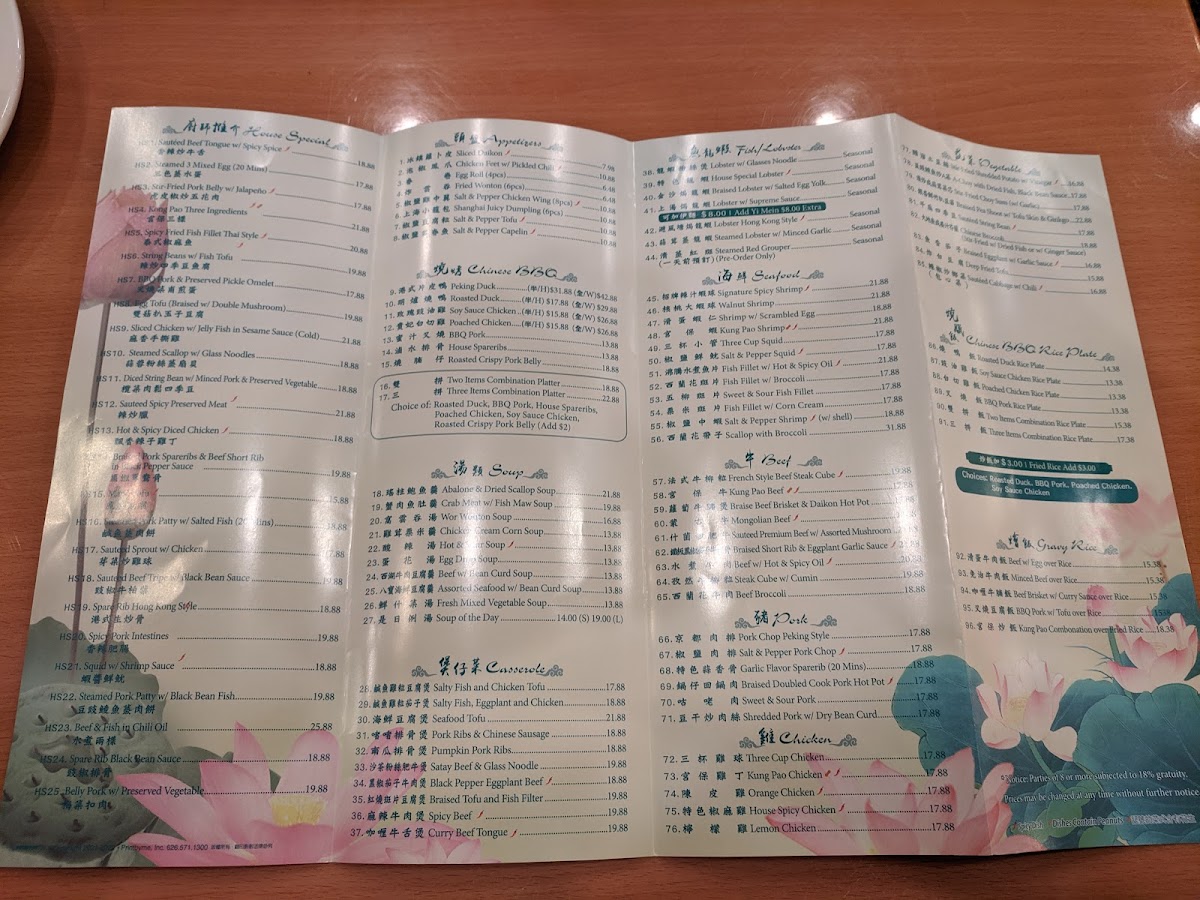 廚師推介 House Special
HS1. Sautéed Beef Tongue w/ Spicy Spice 18.88
香辣炒牛舌
HS2. Steamed 3 Mixed Egg (20 Mins) 17.88
三色蒸水蛋
HS3. Stir-Fried Pork Belly w/ Jalapeño 17.88
虎皮椒炒五花肉
HS4. Kung Pao Three Ingredients 21.88
宮保三樣
HS5. Spicy Fried Fish Fillet Thai Style 20.88
泰式椒麻魚
HS6. String Beans w/ Fish Tofu 19.88
辣炒四季豆魚腐
HS7. BBQ Pork & Preserved Pickle Omelet 17.88
HS8. Egg Tofu (Braised w/ Double Mushroom) 19.88
雙菇扒玉子豆腐
HS9. Sliced Chicken w/ Jelly Fish in Sesame Sauce (Cold) 21.88
麻香手撕雞
HS10. Steamed Scallop w/ Glass Noodles 18.88
蒜蓉粉絲蒸扇貝
HS11. Diced String Bean w/ Minced Pork & Preserved Vegetable 18.88
欖菜肉鬆四季豆
HS12. Sauteed Spicy Preserved Meat 21.88
辣炒臘
HS13. Hot & Spicy Diced Chicken 18.88
飄香辣子雞丁
Braised Pork Spareribs & Beef Short Rib
in Pepper Sauce 19.88
HS15. 15.88
HS16. Pork Patty w/ Salted Fish (20 Mins) 18.88
鹹魚蒸肉餅
HS17. Sauteed Sprout w/ Chicken 17.88
芽菜炒雞球
HS18. Sauteed Beef Tripe w/ Black Bean Sauce 19.88
豉椒牛柏葉
HS19. Spare Rib Hong Kong Style 18.88
港式生炒骨
HS20. Spicy Pork Intestines 19.88
香辣肥腸
HS21. Squid w/ Shrimp Sauce 18.88
蝦醬鮮魷
HS22. Steamed Pork Patty w/ Black Bean Fish 19.88
豆豉鯪魚蒸肉餅
HS23. Beef & Fish in Chili Oil 25.88
水煮兩樣
HS24. Spare Rib Black Bean Sauce 18.88
豉椒排骨
HS25. Belly Pork w/ Preserved Vegetable 19.88
梅菜扣肉
Printbyme, Inc. 626.571.1300
頭盤 Appetizers
1. 冰鎮蘿卜皮 Sliced Daikon 7.98
2. 泡椒鳳爪 Chicken Feet w/ Pickled Chili 10.88
3. 春卷 Egg Roll (4pcs) 6.48
4. 炸雲吞 Fried Wonton (6pcs) 6.48
5. 椒鹽雞中翼 Salt & Pepper Chicken Wing (8pcs) 10.88
6. 上海小籠包 Shanghai Juicy Dumpling (6pcs) 10.88
7. 椒鹽豆腐粒 Salt & Pepper Tofu 10.88
8. 椒鹽多春魚 Salt & Pepper Capelin 10.88
燒味 Chinese BBQ
9. 港式片皮鴨 Peking Duck (半/H) $31.88 (隻/W) $42.88
10. 明爐燒鴨 Roasted Duck (半/H) $17.88 (隻/W) $29.88
11. 玫瑰豉油雞 Soy Sauce Chicken (半/H) $15.88 (隻/W) $26.88
12. 貴妃白切雞 Poached Chicken (半/H) $15.88 (隻/W) $26.88
13. 蜜汁叉燒 BBQ Pork 13.88
14. 滷水排骨 House Spareribs 13.88
15. 燒腩仔 Roasted Crispy Pork Belly 18.88
16. 雙拼 Two Items Combination Platter 18.88
17. 三拼 Three Items Combination Platter 22.88
Choice of: Roasted Duck, BBQ Pork, House Spareribs,
Poached Chicken, Soy Sauce Chicken,
Roasted Crispy Pork Belly (Add $2)
湯類 Soup
18. 瑤柱鮑魚羹 Abalone & Dried Scallop Soup 21.88
19. 蟹肉魚肚羹 Crab Meat w/ Fish Maw Soup 19.88
20. 窩雲吞湯 Wor Wonton Soup 16.88
21. 雞茸粟米羹 Chicken Cream Corn Soup 13.88
22. 酸辣湯 Hot & Sour Soup 13.88
23. 蛋花湯 Egg Drop Soup 12.88
24. 西湖牛肉豆腐羹 Beef w/ Bean Curd Soup 13.88
25. 八寶海鮮豆腐羹 Assorted Seafood w/ Bean Curd Soup 13.88
26. 鮮什菜湯 Fresh Mixed Vegetable Soup 13.88
27. 是日例湯 Soup of the Day 14.00 (S) 19.00 (L)
煲仔菜 Casserole
28. 鹹魚雞粒豆腐煲 Salty Fish and Chicken Tofu 17.88
29. 鹹魚雞粒茄子煲 Salty Fish, Eggplant and Chicken 18.88
30. 海鮮豆腐煲 Seafood Tofu 21.88
31. 啫啫排骨煲 Pork Ribs & Chinese Sausage 18.88
32. 南瓜排骨煲 Pumpkin Pork Ribs 18.88
33. 沙茶粉絲肥牛煲 Satay Beef & Glass Noodle 19.88
34. 黑椒茄子牛肉煲 Black Pepper Eggplant Beef 18.88
35. 紅燒斑片豆腐煲 Braised Tofu and Fish Filter 19.88
36. 麻辣牛肉煲 Spicy Beef 19.88
37. 咖喱牛舌煲 Curry Beef Tongue 19.88
魚龍蝦 Fish/Lobster
38. 龍蝦粉絲煲 Lobster w/ Glasses Noodle Seasonal
39. 特色龍蝦 House Special Lobster Seasonal
40. 金沙焗龍蝦 Braised Lobster w/ Salted Egg Yolk Seasonal
41. 上湯焗龍蝦 Lobster w/ Supreme Sauce Seasonal
可加伊麵 $8.00 | Add Yi Mein $8.00 Extra
42. 避風塘焗龍蝦 Lobster Hong Kong Style Seasonal
43. 蒜茸蒸龍蝦 Steamed Lobster w/ Minced Garlic Seasonal
44. 清蒸紅斑 Steamed Red Grouper Seasonal
(一天前預訂) (Pre-Order Only)
海鮮 Seafood
45. 招牌辣汁蝦球 Signature Spicy Shrimp 21.88
46. 核桃大蝦球 Walnut Shrimp 21.88
47. 滑蛋蝦仁 Shrimp w/ Scrambled Egg 18.88
48. 宮保蝦 Kung Pao Shrimp 21.88
49. 三杯小管 Three Cup Squid 17.88
50. 椒鹽鮮魷 Salt & Pepper Squid 17.88
51. 沸騰水煮魚片 Fish Fillet w/ Hot & Spicy Oil 21.88
52. 西蘭花斑片 Fish Fillet w/ Broccoli 17.88
53. 五柳斑片 Sweet & Sour Fish Fillet 17.88
54. 粟米斑片 Fish Fillet w/ Corn Cream 17.88
55. 椒鹽中蝦 Salt & Pepper Shrimp (w/ shell) 18.88
56. 西蘭花帶子 Scallop with Broccoli 31.88
牛 Beef
57. 法式牛柳粒 French Style Beef Steak Cube 19.88
58. 宮保牛 Kung Pao Beef 17.88
59. 蘿蔔牛腩煲 Braise Beef Brisket & Daikon Hot Pot 17.88
60. 蒙古牛 Mongolian Beef 17.88
61. 什菌肥牛 Sauteed Premium Beef w/ Assorted Mushroom
62. Braised Short Rib & Eggplant Garlic Sauce
63. 水煮牛 Beef w/ Hot & Spicy Oil 20.88
64. 孜然牛柳粒 Steak Cube w/ Cumin 19.88
65. 西蘭花牛肉 Beef Broccoli 18.88
豬 Pork
66. 京都肉排 Pork Chop Peking Style 17.88
67. 椒鹽肉排 Salt & Pepper Pork Chop 17.88
68. 特色蒜香骨 Garlic Flavor Sparerib (20 Mins) 18.88
69. 鍋仔回鍋肉 Braised Doubled Cook Pork Hot Pot 17.88
70. 咕咾肉 Sweet & Sour Pork 17.88
71. 豆干炒肉絲 Shredded Pork w/ Dry Bean Curd 17.88
雞 Chicken
72. 三杯雞球 Three Cup Chicken 17.88
73. 宮保雞丁 Kung Pao Chicken 17.88
74. 陳皮雞 Orange Chicken 17.88
75. 特色椒麻雞 House Spicy Chicken 17.88
76. 檸檬雞 Lemon Chicken 17.88
蔬菜 Vegetable
Shredded Potato w/ Vinegar 16.88
w/ Dried Fish, Black Bean Sauce 17.88
Stir Fried Choy Sum (w/ Garlic) 17.88
Braised Pea Shoot w/ Tofu Skin & Ginkgo 22.88
Sauteed String Bean 17.88
Chinese Broccoli
(Stir Fried w/ Dried Fish or w/ Ginger Sauce) 17.88
83. 魚香茄子 Braised Eggplant w/ Garlic Sauce 16.88
84. 炸豆腐 Deep Fried Tofu 15.88
Sauteed Cabbage w/ Chili 16.88
燒臘飯 Chinese BBQ Rice Plate
86. 燒鴨飯 Roasted Duck Rice Plate 14.38
87. 豉油雞飯 Soy Sauce Chicken Rice Plate 13.38
88. 白切雞飯 Poached Chicken Rice Plate 13.38
89. 叉燒飯 BBQ Pork Rice Plate 13.38
90. 雙拼飯 Two Items Combination Rice Plate 15.38
91. 三拼飯 Three Items Combination Rice Plate 17.38
炒飯加 $3.00 | Fried Rice Add $3.00
Choices: Roasted Duck, BBQ Pork, Poached Chicken,
Soy Sauce Chicken
燴飯 Gravy Rice
92. 滑蛋牛肉飯 Beef w/ Egg over Rice 15.38
93. 免治牛肉飯 Minced Beef over Rice 15.38
94. 咖喱牛腩飯 Beef Brisket w/ Curry Sauce over Rice 15.38
95. 叉燒豆腐飯 BBQ Pork w/ Tofu over Rice 15.38
96. 宮保炒飯 Kung Pao Combonation over Fried Rice 18.38
*Notice: Parties of 8 or more subjected to 18% gratuity.
Prices may be changed at any time without further notice
Dishes Contain Peanuts